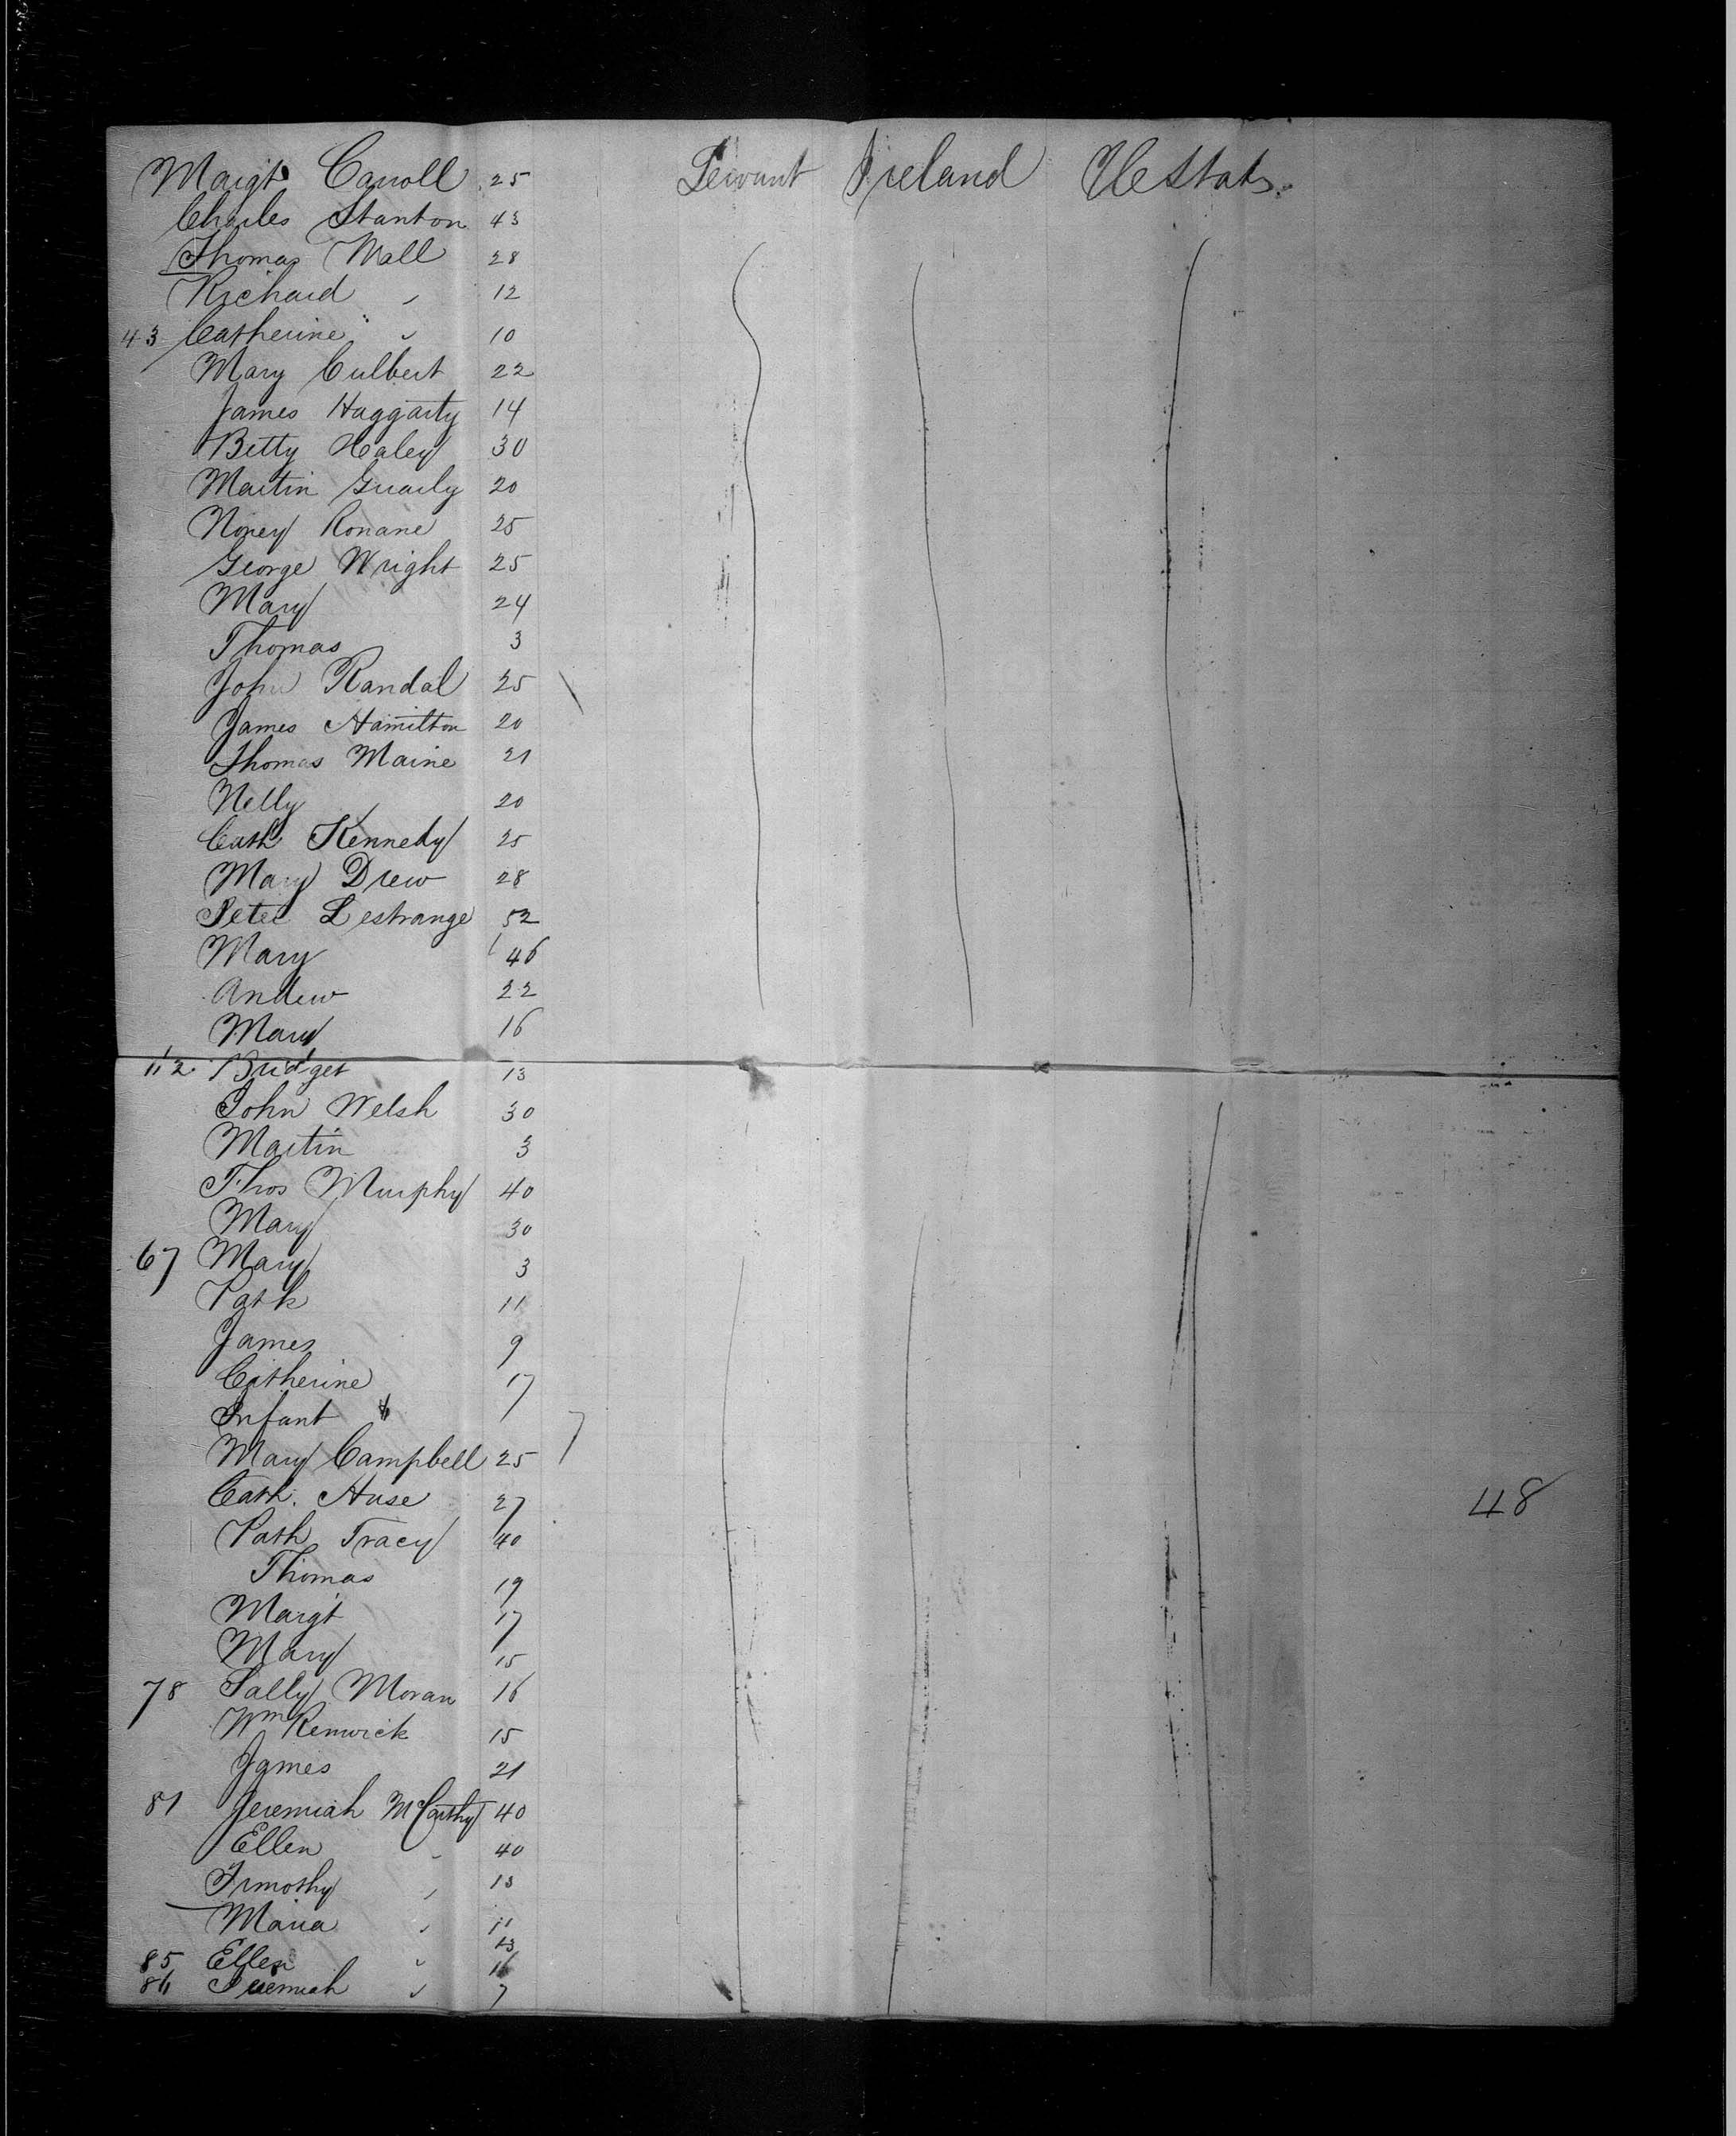 Margt Carroll 25 Servant Ireland UeStats.
Charles Stanton 43
Thomas Wall 28
Richard " 12
43 Catherine " 10
Mary Culbert 22
James Haggarty 14
Betty Haley 30
Martin 20
Noney Ronane 25
George Wright 25
Mary 24
Thomas 3
John Randal 25
James Hamilton 20
Thomas Maine 21
Nelly 20
Cath Kennedy 25
Mary Drew 28
Peter Lestrange 52
Mary 46
Andrew 22
Mary 16
Bridget 13
John Welsh 30
Martin 3
Thos Murphy 40
Mary 30
67 Mary 3
Patk 11
James 9
Catherine 17
Infant
Mary Campbell 25
Cath. Huse 27
48
Patk Tracy 40
Thomas 19
Margt 17
Mary 15
78 Sally Moran 16
Wm Renwick 15
James 21
81 Jeremiah McCarthy 40
Ellen " 40
Timothy " 13
Maria " 11
13
85 Ellen "
86 Jeremiah " 7